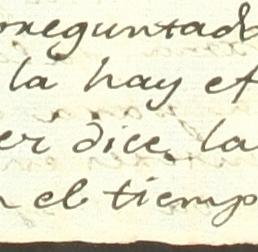 preguntad
la hay ef
er dice la
n el tiemp